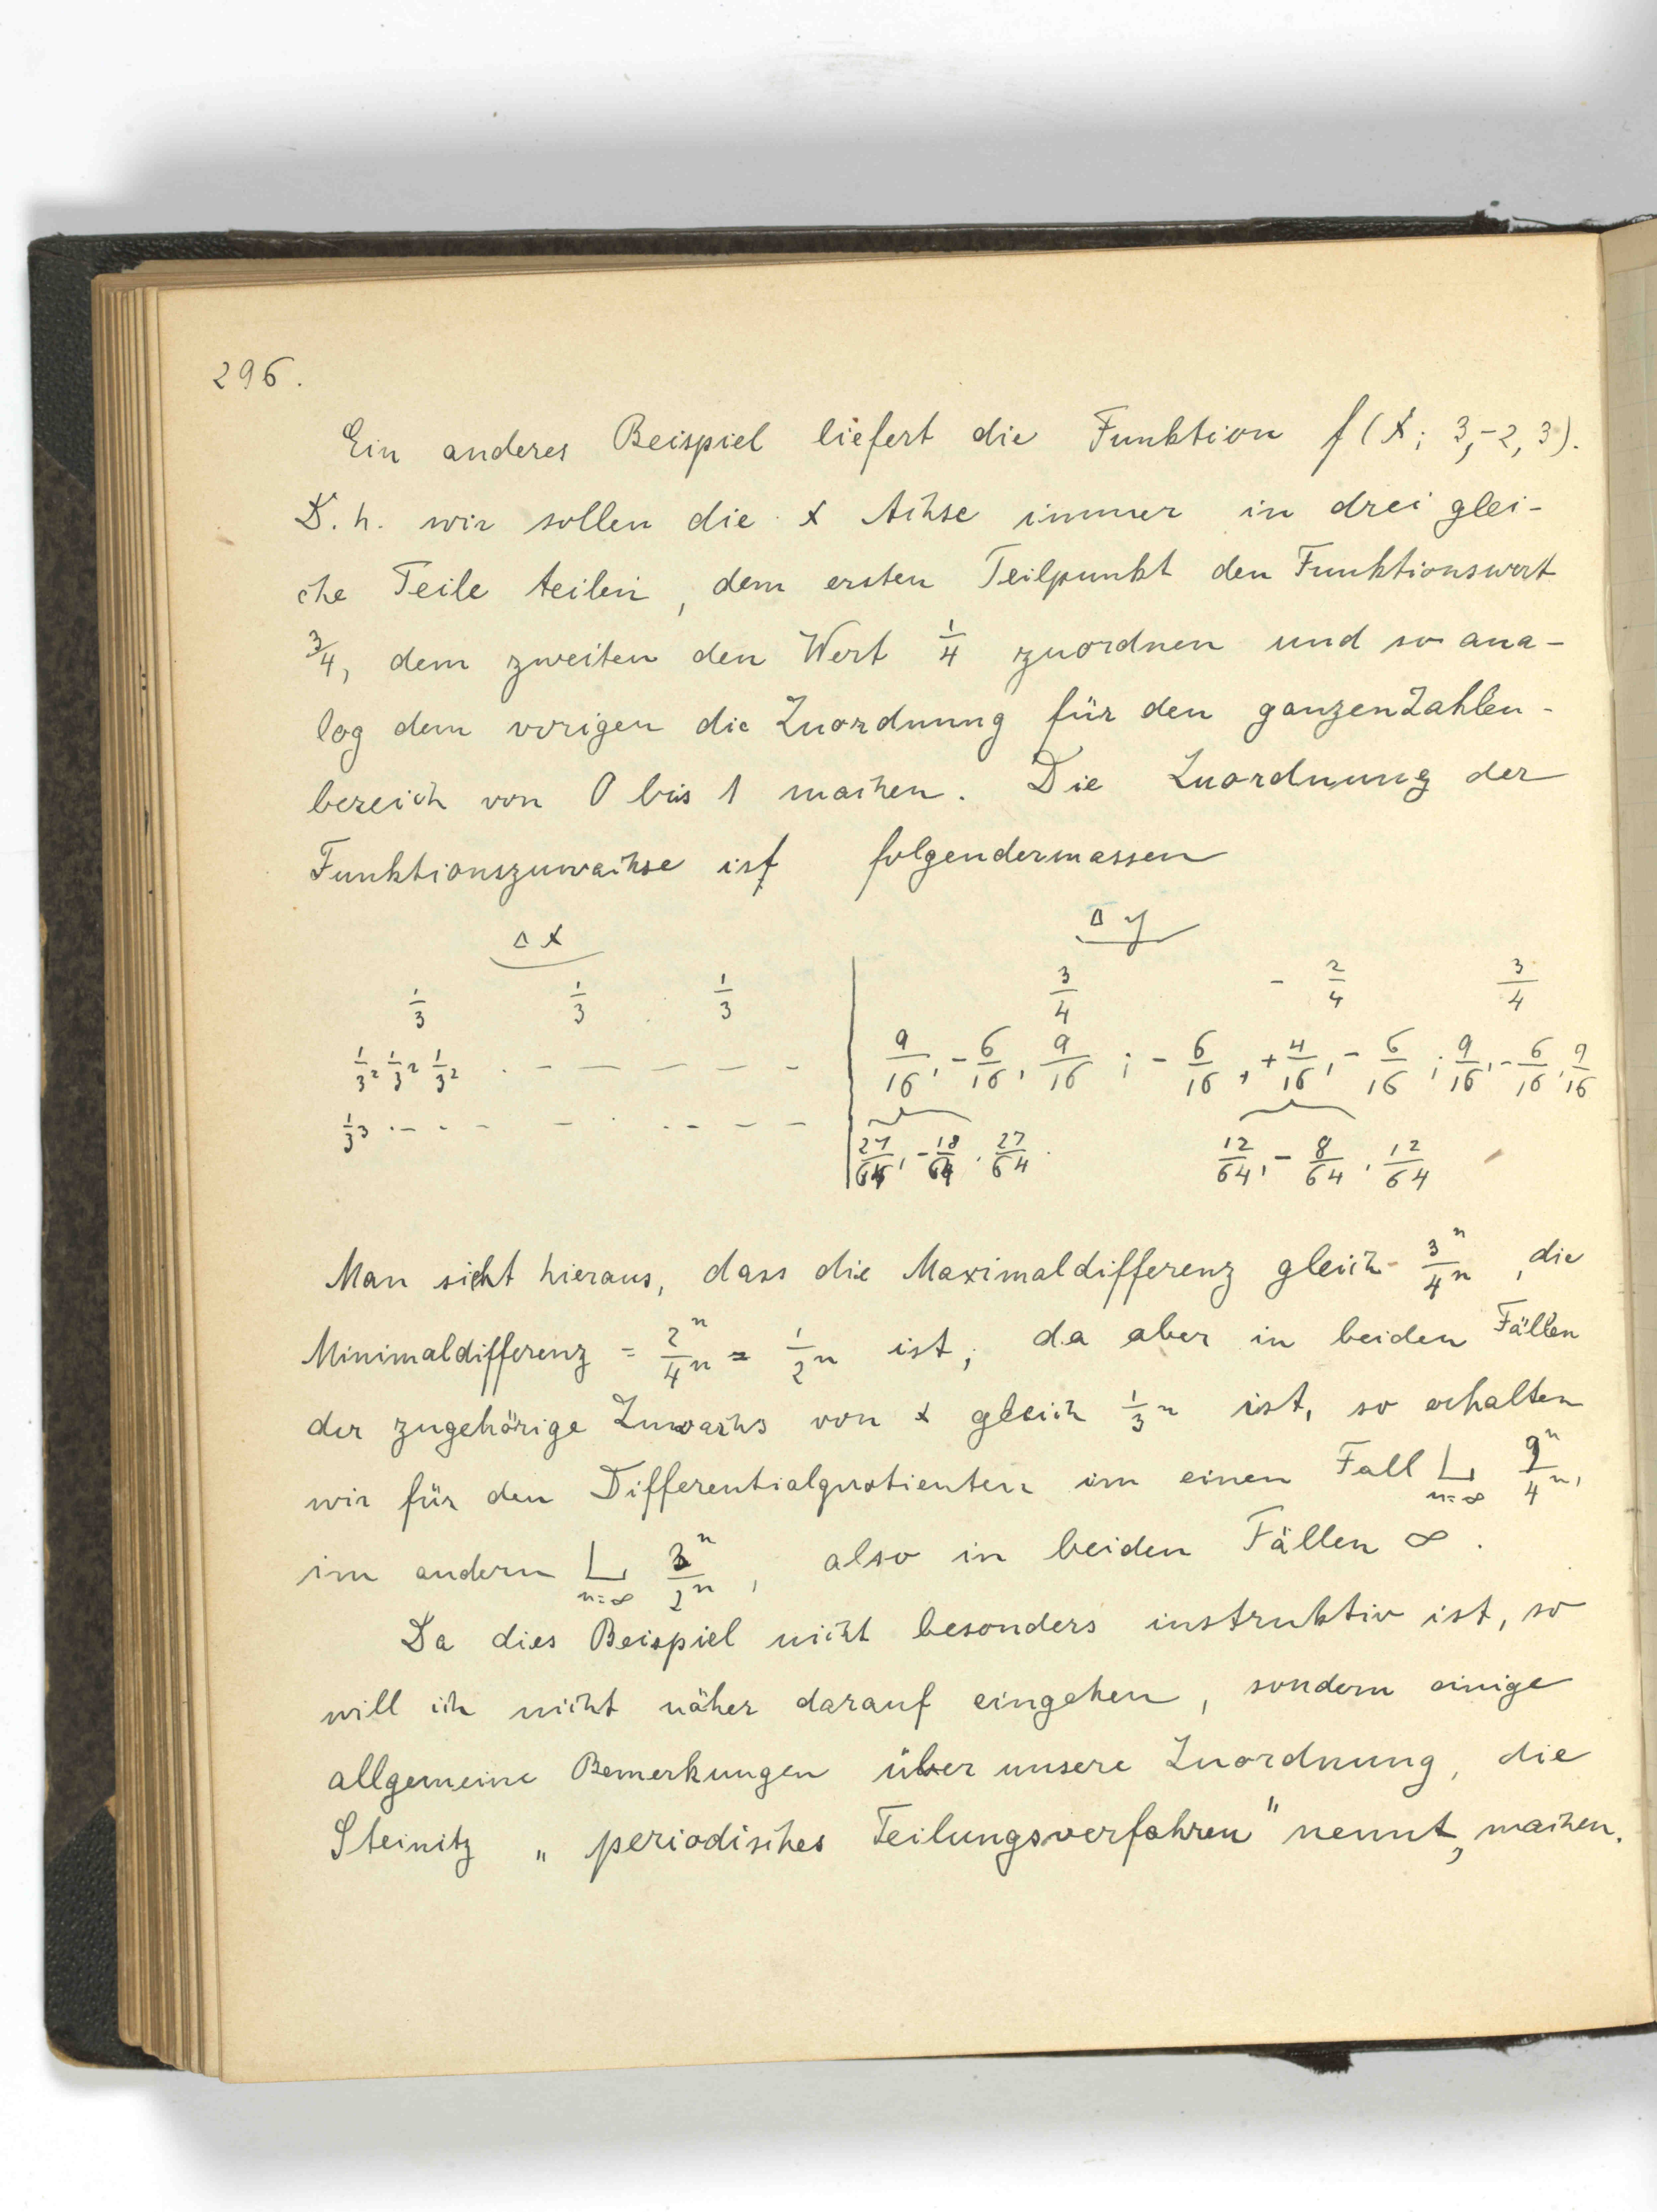 296.
Ein anderes Beispiel liefert die Funktion f(x; 3,-2, 3).
D.h. wir sollen die x Achse immer in drei glei-
che Teile teilen, dem ersten Teilpunkt den Funktionswert
3/4, dem zweiten den Wert 1/4 zuordnen und so ana-
log dem vorigen die Zuordnung für den ganzen Zahlen-
bereich von 0 bis 1 machen. Die Zuordnung der
Funktionszuwachse ist folgendermassen
Δx Δy
1/3 1/3 1/3 | 3/4 - 2/4 3/4
1/3² 1/3² 1/3² . - - - - - | 9/16, - 6/16, 9/16 ; - 6/16, + 4/16, - 6/16 ; 9/16, - 6/16, 9/16
1/3³ . - . - - . . - - - | 27/64, - 18/64, 27/64 12/64, - 8/64, 12/64
Man sieht hieraus, dass die Maximaldifferenz gleich 3ⁿ/4ⁿ, die
Minimaldifferenz = 2ⁿ/4ⁿ = 1/2ⁿ ist; da aber in beiden Fällen
der zugehörige Zuwachs von x gleich 1/3ⁿ ist, so erhalten
wir für den Differentialquotienten im einen Fall L n=∞ 9ⁿ/4ⁿ,
im andern L n=∞ 3ⁿ/2ⁿ, also in beiden Fällen ∞.
Da dies Beispiel nicht besonders instruktiv ist, so
will ich nicht näher darauf eingehen, sondern einige
allgemeine Bemerkungen über unsere Zuordnung, die
Steinitz „periodisches Teilungsverfahren" nennt, machen.